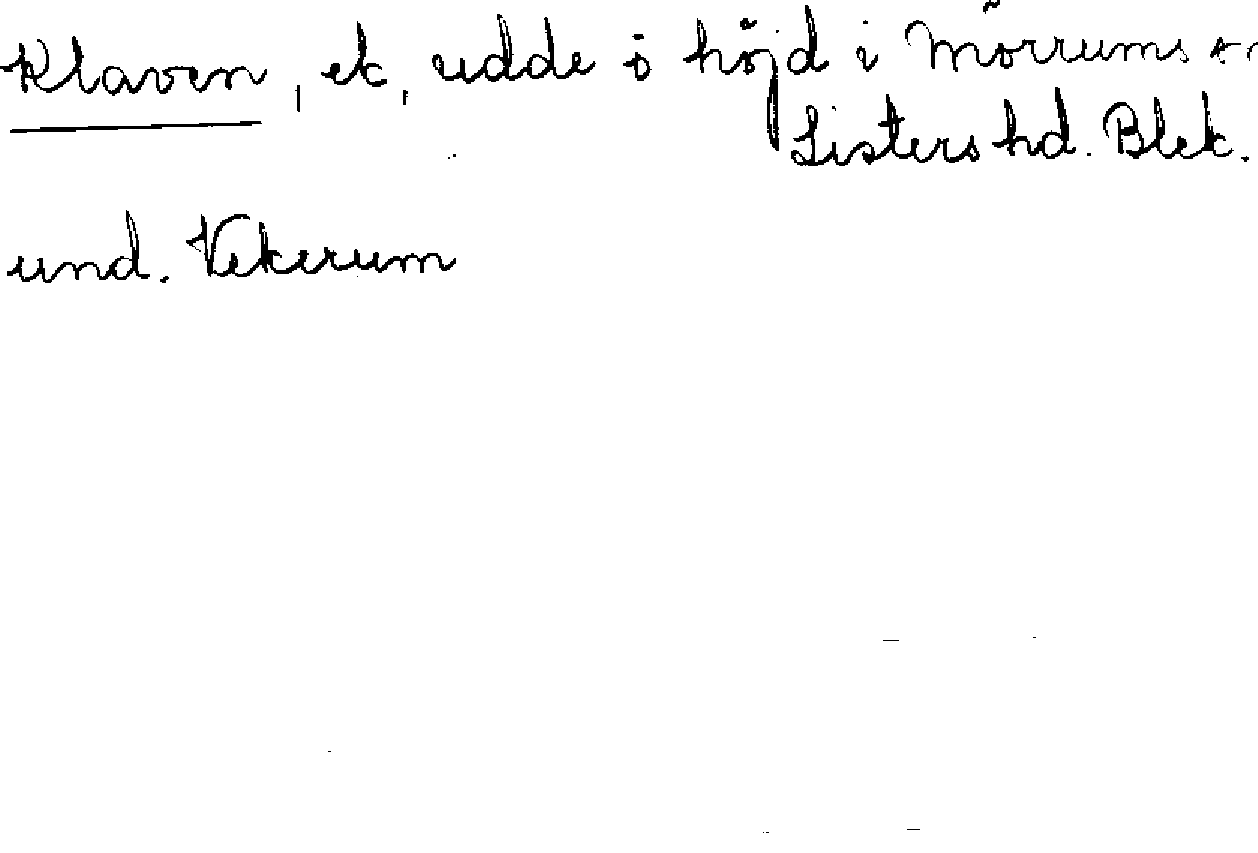 Klaven, ek, udde o höjd i Mörrums sn
Listers hd. Blek.
und. Vekerum